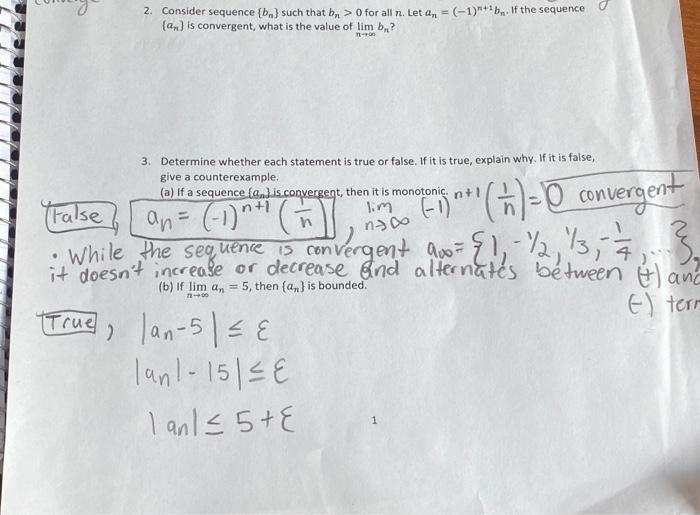 2. Consider sequence {bₙ} such that bₙ > 0 for all n. Let aₙ = (−1)ⁿ⁺¹bₙ. If the sequence
{aₙ} is convergent, what is the value of lim bₙ?
n→∞
3. Determine whether each statement is true or false. If it is true, explain why. If it is false,
give a counterexample.
(a) If a sequence {aₙ} is convergent, then it is monotonic.
False, aₙ = (-1)ⁿ⁺¹ (1/n), lim n→∞ (-1)ⁿ⁺¹ (1/n) = 0 convergent
• While the sequence is convergent a∞ = {1, -1/2, 1/3, -1/4, ...},
it doesn't increase or decrease and alternates between (+) and
(-) terr
(b) If lim aₙ = 5, then {aₙ} is bounded.
n→∞
True, |aₙ-5| ≤ ε
|aₙ| - |5| ≤ ε
|aₙ| ≤ 5+ε
1